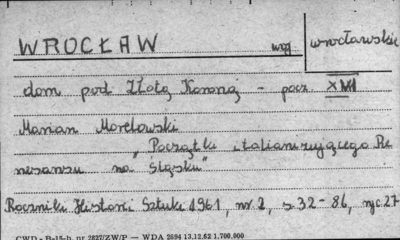 WROCŁAW woj wrocławskie
dom pod Złotą Koroną – pocz. XVI
Marian Morelowski
„Początki italianizującego Re
nesansu na Śląsku"
Roczniki Historii Sztuki 1961, nr. 2, s. 32-86, ryc. 27
CWD - B-15-b. nr 2827/ZW/P — WDA 2694 13.12.62 1.700.000